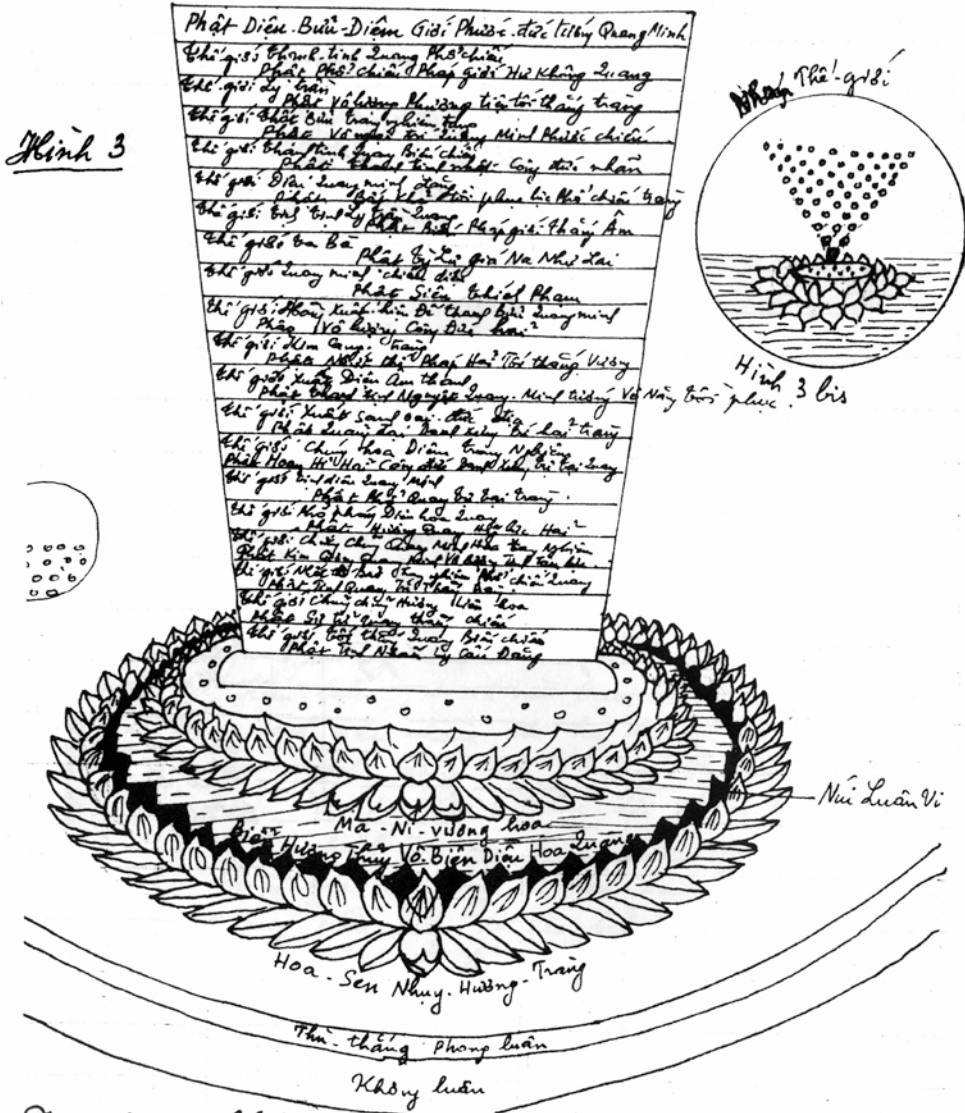 Phật Diệu Bửu-Diệm Giới Phước-đức tướng Quang Minh
Thế giới thanh-tịnh Quang Phổ chiếu
Phật Phổ chiếu Pháp giới Hư Không Quang
Thế giới Ly trần
Phật Vô lượng Phương tiện tối thắng tràng
Thế giới Thất Bửu trang nghiêm tạng
Phật Vô ngại trí Quang Minh chiếu
Thế giới thanh tịnh Quang Biến chiếu
Phật thanh tịnh nhật Công đức nhãn
Thế giới Diệu Quang minh đăng
Phật Bất Khả tồi phục lực Phổ chiếu tràng
Thế giới Ly trần Quang
Phật Biến Pháp giới thắng Âm
Thế giới Ta Bà
Phật Tỳ Lư giá Na Như Lai
Thế giới Quang minh chiếu diệu
Phật Siêu thích Phạm
Thế giới Hằng Xuất hiện Đế thanh Bửu Quang minh
Phật Vô lượng Công Đức hải
Thế giới Kim Cang tràng
Phật Nhứt thiết Pháp Hải Tối thắng Vương
Thế giới Xuất Diệu Âm thanh
Phật thanh tịnh Nguyệt Quang Minh tướng Vô Năng tồi phục
Thế giới Xuất Sanh oai đức địa
Phật Quảng đại Danh Xưng trí hải tràng
Thế giới Chúng hoa Diệm trang Nghiêm
Phật Hoan Hỉ Hải Công đức Danh Xưng tự tại Quang
Thế giới tịnh diệu Quang Minh
Phật Phổ Quang tự tại tràng
Thế giới phóng Diệu hoa Quang
Phật Hương Quang Hỷ lực Hải
Thế giới Chủng Chủng Quang Minh Hoa trang Nghiêm
Phật Kim Cang Quang Minh Vô lượng Tinh tấn lực
Thế giới Nhứt thiết Bửu trang nghiêm Phổ chiếu Quang
Phật Tịnh Quang Trí
Thế giới Chủng chủng Hương liên hoa
Phật Sư tử Quang thắng chiếu
Thế giới tối thắng Quang Biến chiếu
Phật Tịnh Nhãn Ly Cấu Đăng
Hình 3
Thế-giới
Hình 3 bis
Núi Luân Vi
Ma-Ni-vương hoa
Biển Hương Thủy Vô-Biên Diệu Hoa Quang
Hoa-Sen Nhụy-Hương-Tràng
Thù-thắng phong luân
Không luân